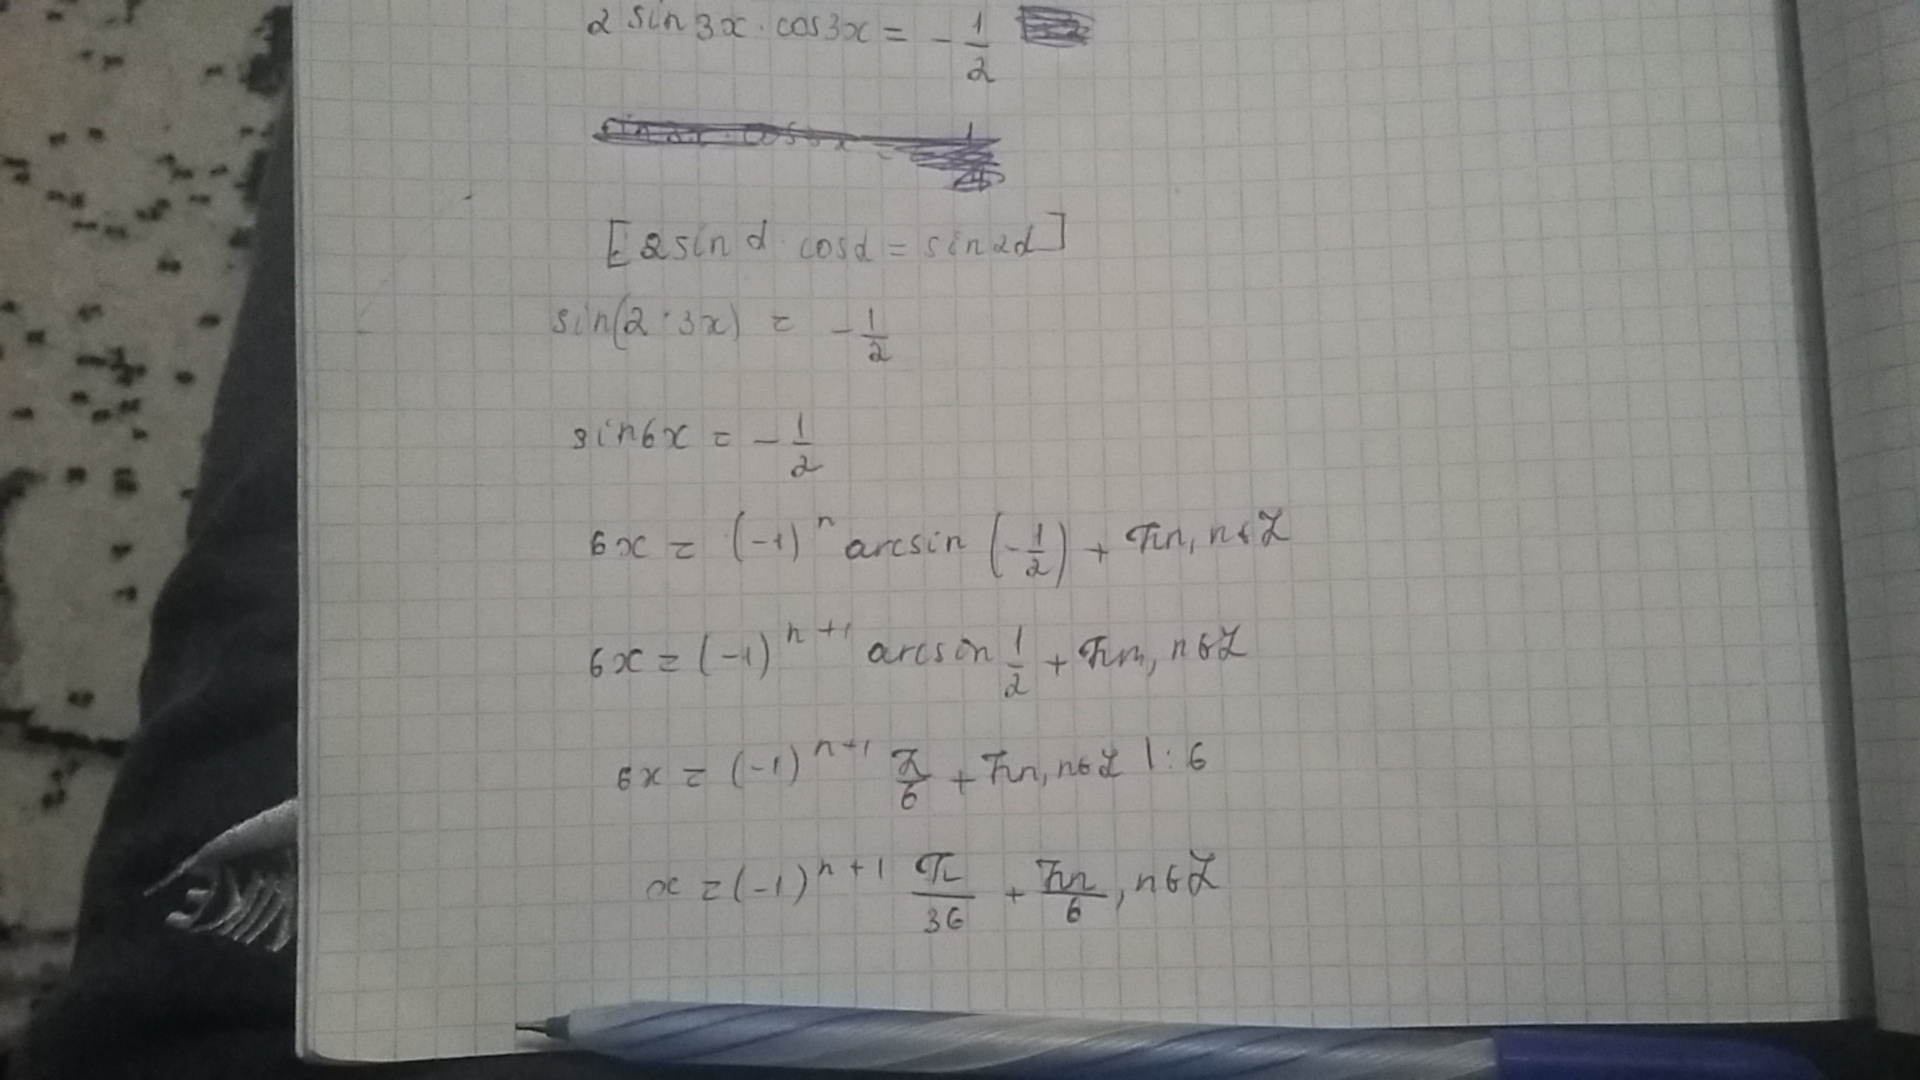 2 sin 3x · cos 3x = - 1/2
[2 sin α · cos α = sin 2α]
sin(2 · 3x) = - 1/2
sin 6x = - 1/2
6x = (-1)^n arcsin (- 1/2) + πn, n ∈ Z
6x = (-1)^(n+1) arcsin 1/2 + πn, n ∈ Z
6x = (-1)^(n+1) π/6 + πn, n ∈ Z | : 6
x = (-1)^(n+1) π/36 + πn/6, n ∈ Z